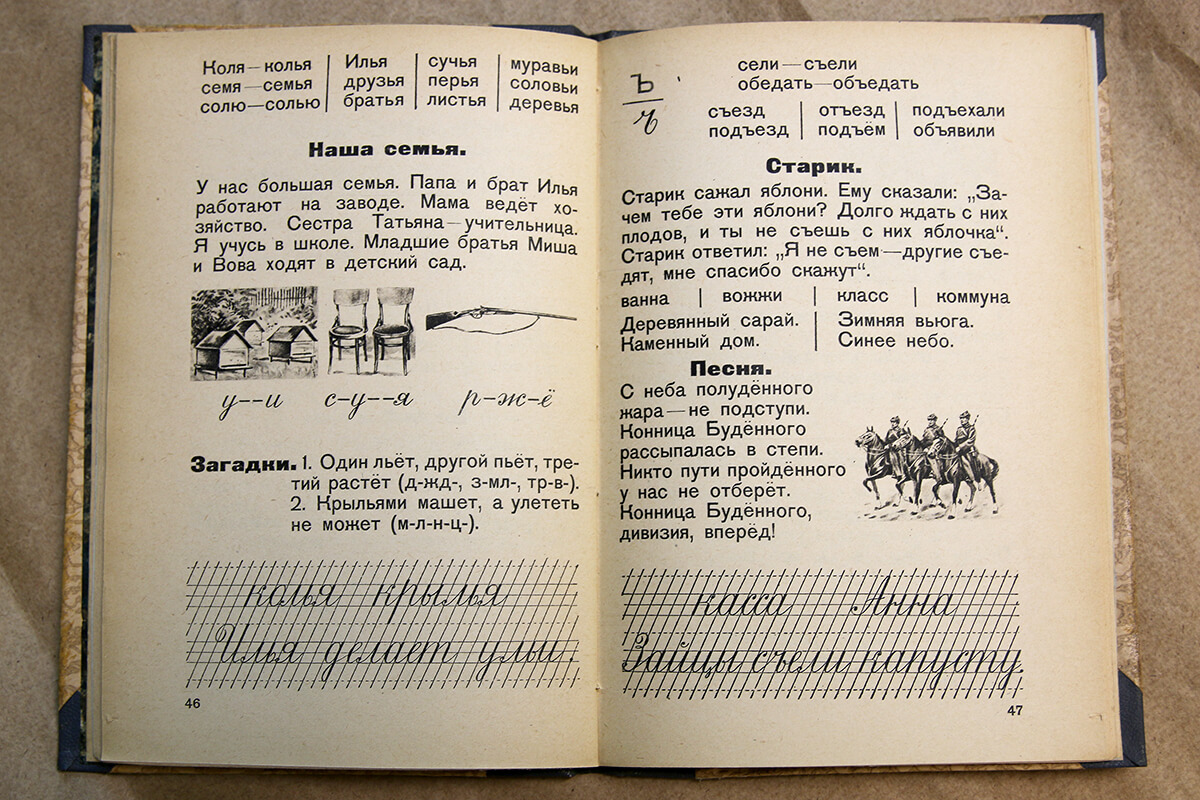 Коля—колья | Илья | сучья | муравьи
семя—семья | друзья | перья | соловьи
солю—солью | братья | листья | деревья
Наша семья.
У нас большая семья. Папа и брат Илья
работают на заводе. Мама ведёт хо-
зяйство. Сестра Татьяна—учительница.
Я учусь в школе. Младшие братья Миша
и Вова ходят в детский сад.
у--и с-у--я р-ж-ё
Загадки. 1. Один льёт, другой пьёт, тре-
тий растёт (д-жд-, з-мл-, тр-в-).
2. Крыльями машет, а улететь
не может (м-л-н-ц-).
колья крылья
Илья делает ульи.
46
Ъ
ъ
сели—съели
обедать—объедать
съезд | отъезд | подъехали
подъезд | подъём | объявили
Старик.
Старик сажал яблони. Ему сказали: „За-
чем тебе эти яблони? Долго ждать с них
плодов, и ты не съешь с них яблочка“.
Старик ответил: „Я не съем—другие съе-
дят, мне спасибо скажут“.
ванна | вожжи | класс | коммуна
Деревянный сарай. | Зимняя вьюга.
Каменный дом. | Синее небо.
Песня.
С неба полудённого
жара—не подступи.
Конница Будённого
рассыпалась в степи.
Никто пути пройдённого
у нас не отберёт.
Конница Будённого,
дивизия, вперёд!
касса Анна
Зайцы съели капусту.
47